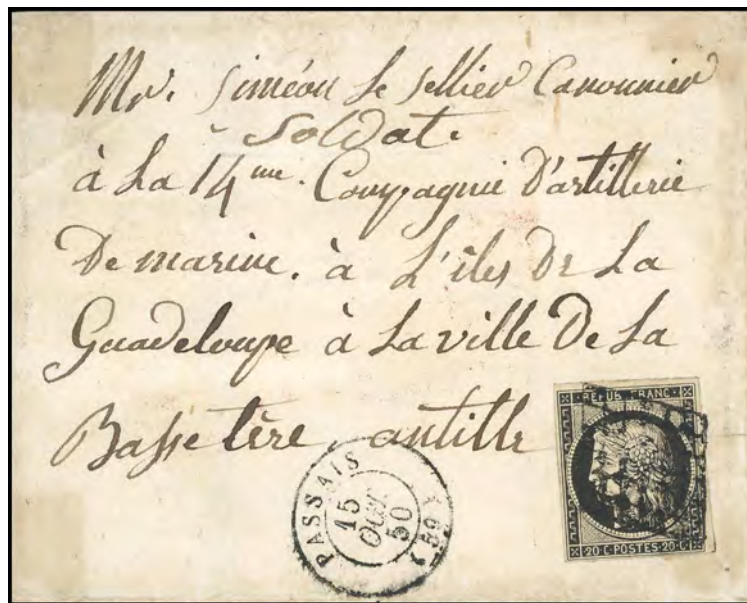 Mr. Siméon Le Sellier Canonnier
Soldat.
à La 14me. Compagnie D'artillerie
De marine. à L'iles De La
Guadeloupe à La ville De La
Basse tère, antille
REPUB. FRANC.
PASSAIS
15
OCT.
50
(59)
20 C. POSTES. 20 C.